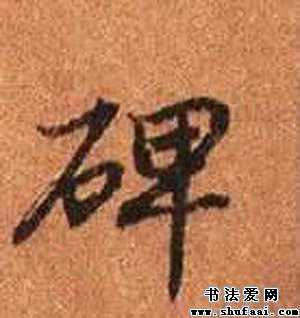 碑
书法爱网
www.shufaai.com